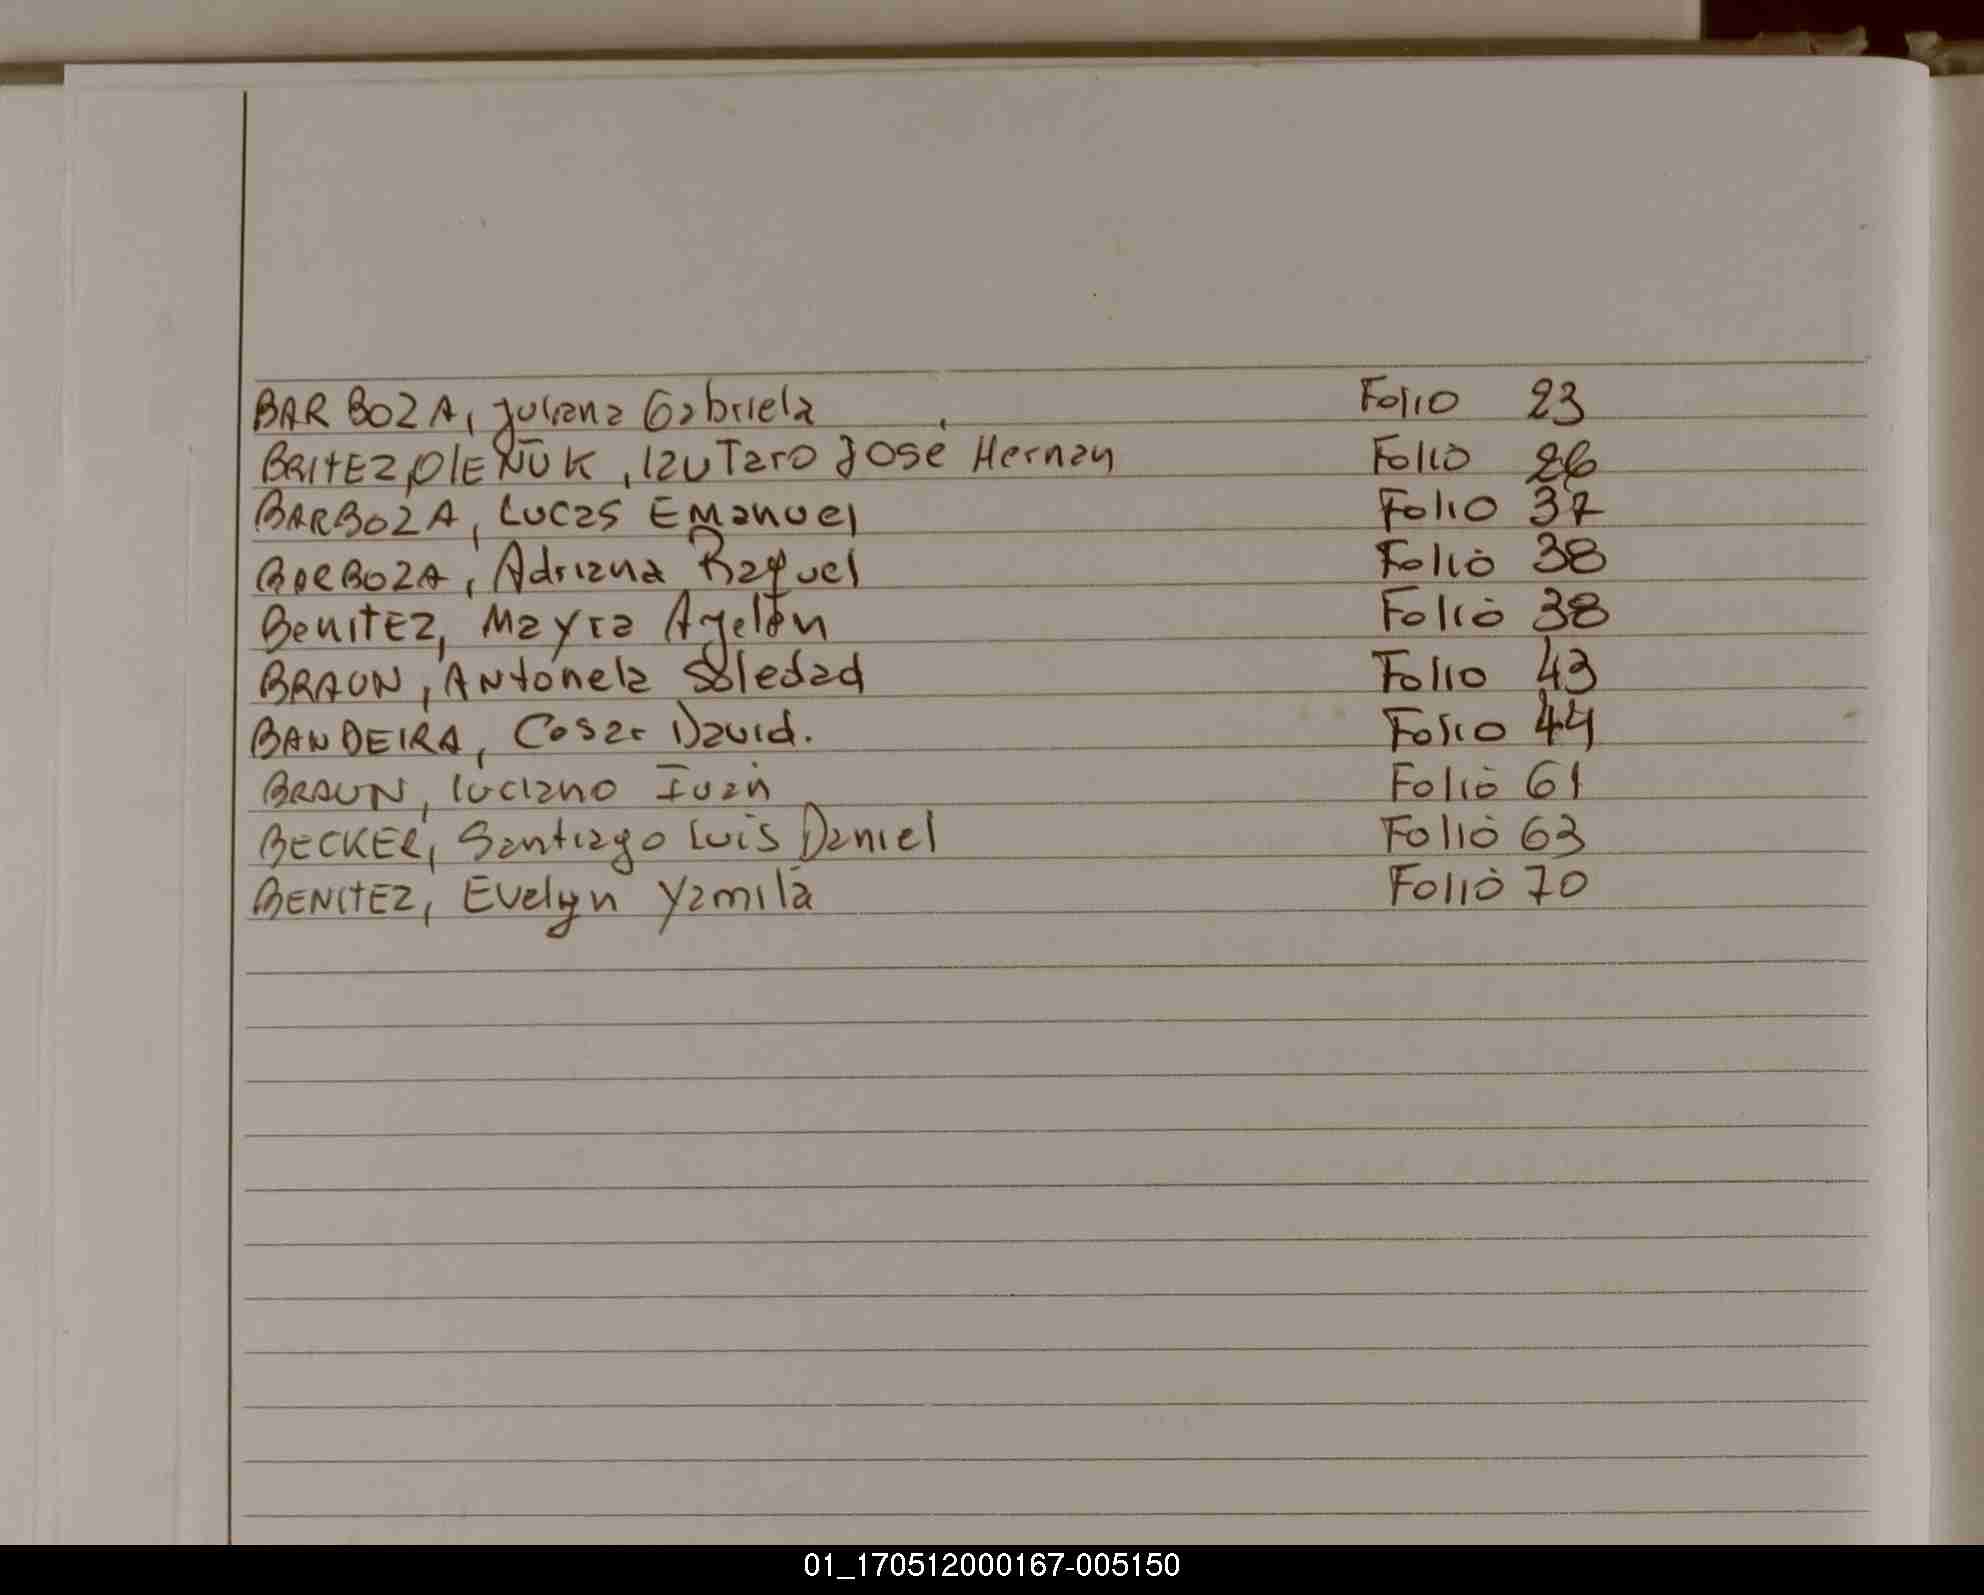 BARBOZA, Juliana Gabriela Folio 23
BRITEZ OLEÑUK, lautaro José Hernan Folio 26
BARBOZA, Lucas Emanuel Folio 37
BARBOZA, Adriana Raquel Folio 38
BENITEZ, Mayra Ayelén Folio 38
BRAUN, Antonela Soledad Folio 43
BANDEIRA, Cesar David. Folio 44
BRAUN, luciano Iván Folio 61
BECKER, Santiago Luis Daniel Folio 63
BENITEZ, Evelyn Yamila Folio 70
01_170512000167-005150